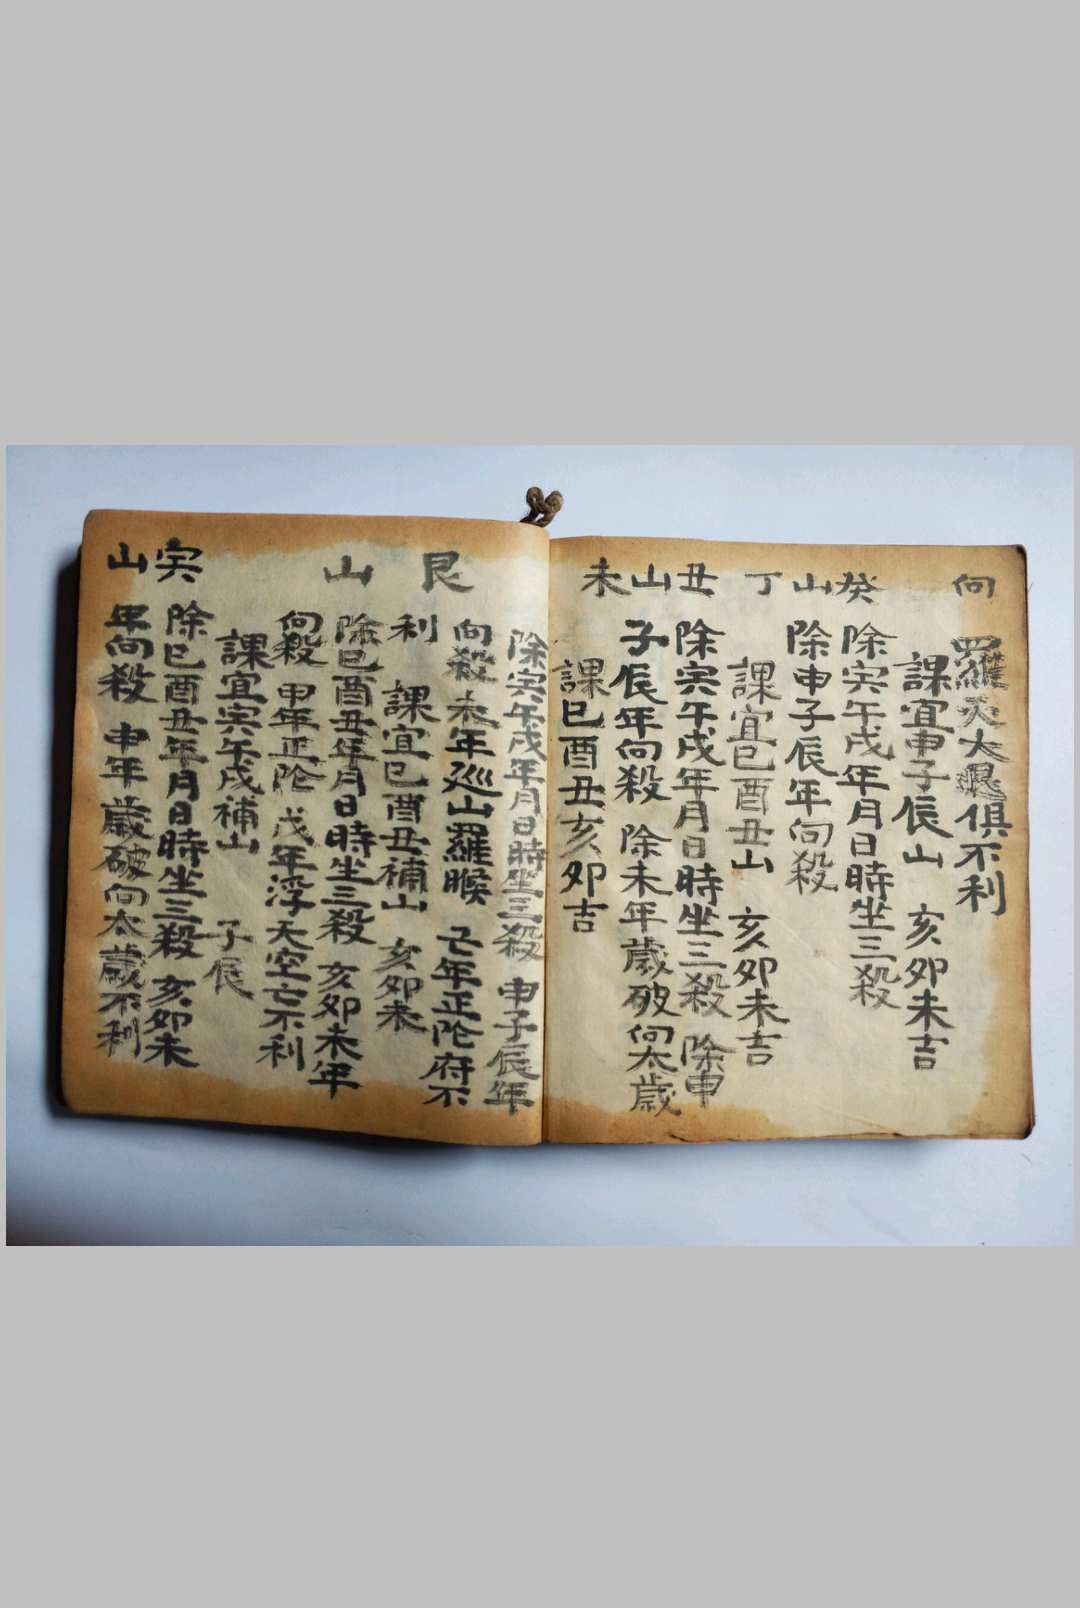 向
羅天大退俱不利
課宜申子辰山 亥卯未吉
癸山丁
除寅午戌年月日時坐三殺
除申子辰年向殺
課宜巳酉丑山 亥卯未吉
丑山未
除寅午戌年月日時坐三殺 除申
子辰年向殺 除未年歲破向太歲
課巳酉丑亥卯吉
除寅午戌年月日時坐三殺 申子辰年
向殺 未年巡山羅睺 亡年正陀府不
利 課宜巳酉丑補山 亥卯未
艮山
除巳酉丑年月日時坐三殺 亥卯未年
向殺 甲年正陀 戊年浮天空亡不利
課宜寅午戌補山 子辰
寅山
除巳酉丑年月日時坐三殺 亥卯未
年向殺 申年歲破向太歲不利